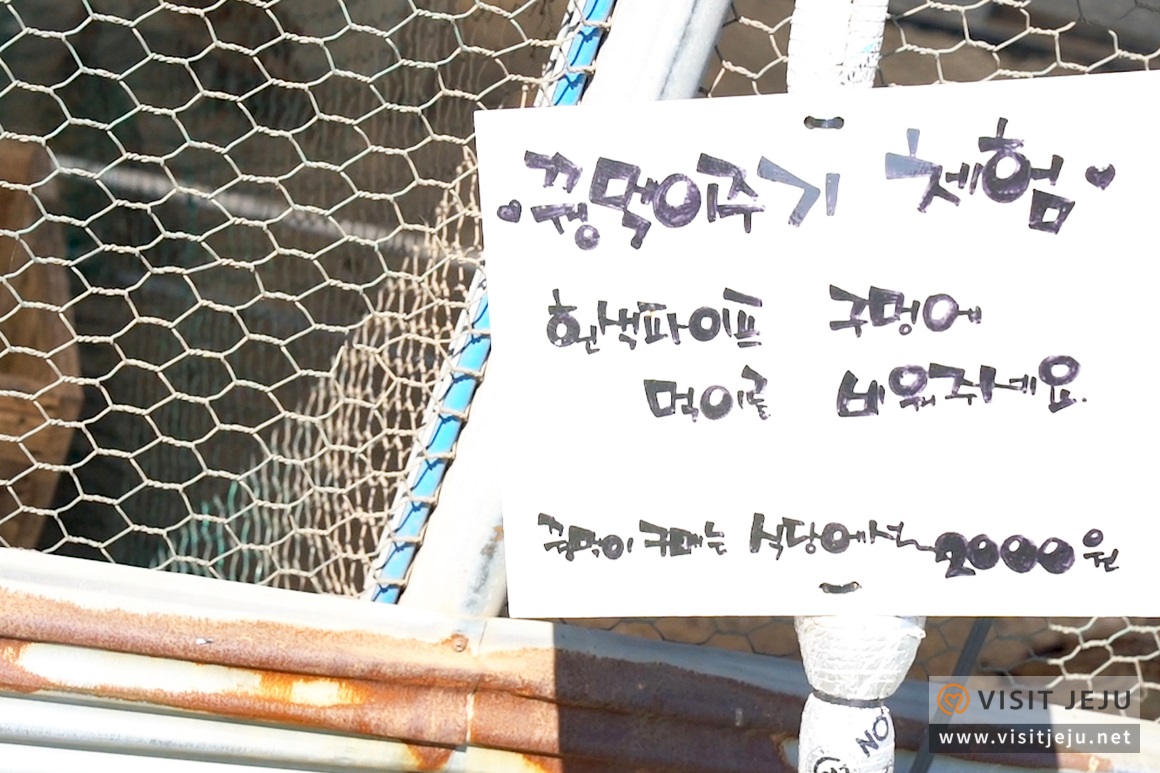 꿩먹이주기 체험
흰색파이프 구멍에
먹이를 비워주세요.
꿩먹이 구매는 식당에서 2000원
NO
VISIT JEJU
www.visitjeju.net